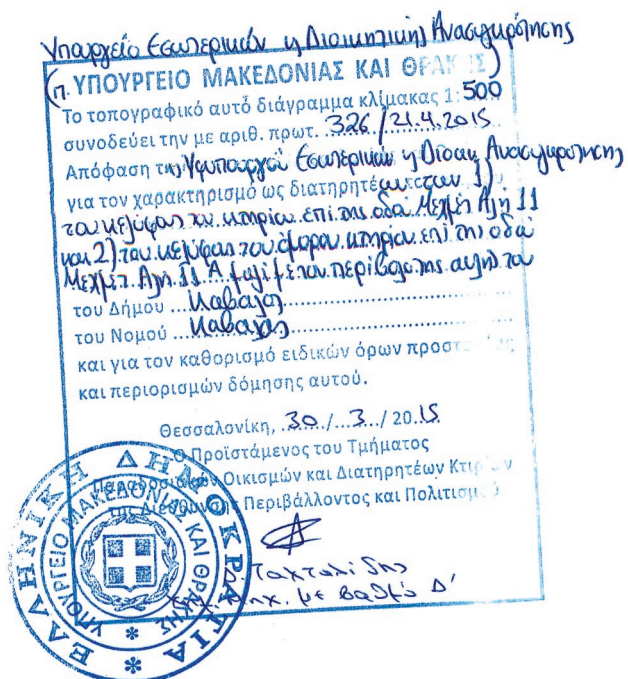 Υπουργείο Εσωτερικών & Διοικητικής Ανασυγκρότησης
(π. ΥΠΟΥΡΓΕΙΟ ΜΑΚΕΔΟΝΙΑΣ ΚΑΙ ΘΡΑΚΗΣ)
Το τοπογραφικό αυτό διάγραμμα κλίμακας 1: 500
συνοδεύει την με αριθ. πρωτ. 326/21.4.2015
Απόφαση της Υφυπουργού Εσωτερικών & Διοικ. Ανασυγκρότησης
για τον χαρακτηρισμό ως διατηρητέων των 1)
του κελύφους του κτηρίου επί της οδού Μεχμέτ Αλή 11
και 2) του κελύφους του όμορου κτηρίου επί της οδού
Μεχμέτ Αλή 11 Α μαζί με τον περίβολο της αυλής του
του Δήμου ...Καβάλας
του Νομού ...Καβάλας
και για τον καθορισμό ειδικών όρων προστασίας
και περιορισμών δόμησης αυτού.
Θεσσαλονίκη, 30../...3.../ 20.15
Ο Προϊστάμενος του Τμήματος
Παραδοσιακών Οικισμών και Διατηρητέων Κτιρίων
της Διεύθυνσης Περιβάλλοντος και Πολιτισμού
Ταχταλίδης
με βαθμό Δ'
ΕΛΛΗΝΙΚΗ ΔΗΜΟΚΡΑΤΙΑ
ΥΠΟΥΡΓΕΙΟ ΜΑΚΕΔΟΝΙΑΣ ΚΑΙ ΘΡΑΚΗΣ